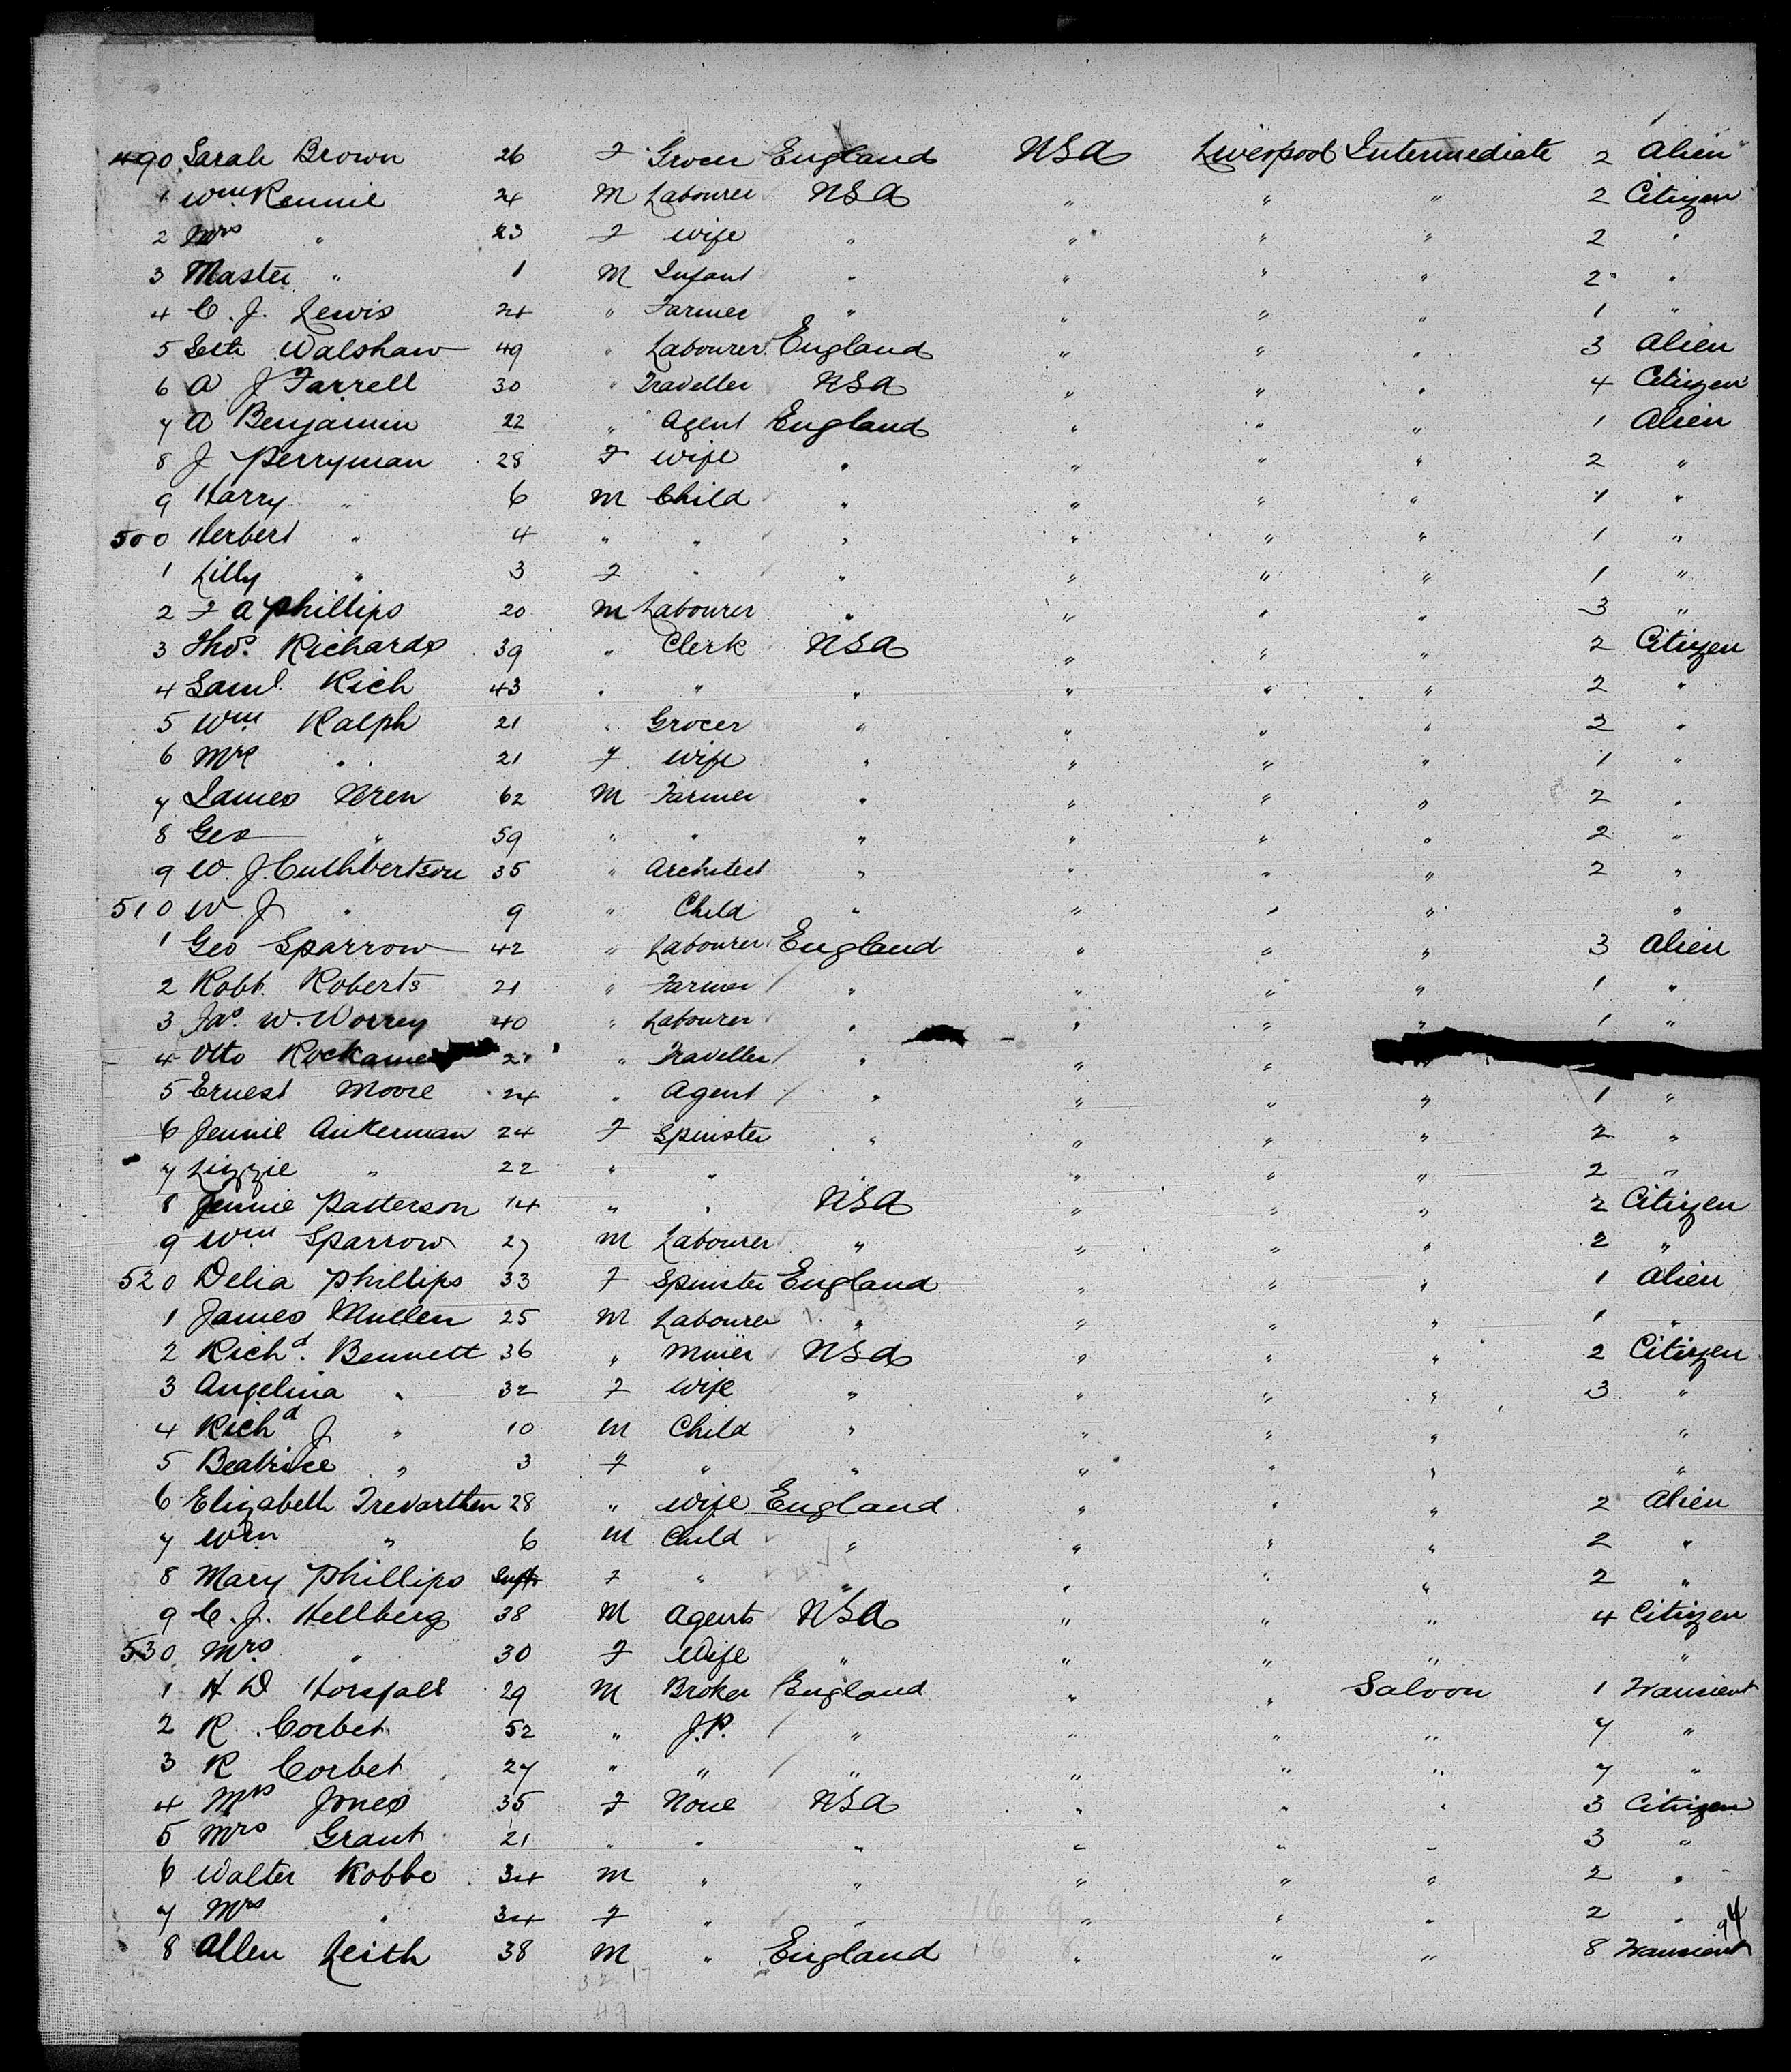 490 Sarah Brown 26 F Grocer England USA Liverpool Intermediate 2 Alien
1 Wm Rennie 24 M Labourer USA " " " 2 Citizen
2 Mrs " 23 F Wife " " " " 2 "
3 Master " 1 M Infant " " " " 2 "
4 C. J. Lewis 24 " Farmer " " " " 1 "
5 Seth Walshaw 49 " Labourer England " " " 3 Alien
6 A J Farrell 30 " Traveller USA " " " 4 Citizen
7 A Benjamin 22 " Agent England " " " 1 Alien
8 J Perryman 28 F Wife " " " " 2 "
9 Harry " 6 M Child " " " " 1 "
500 Herbert " 4 " " " " " " 1 "
1 Lilly " 3 F " " " " " 1 "
2 F A Phillips 20 M Labourer " " " " 3 "
3 Thos. Richards 39 " Clerk USA " " " 2 Citizen
4 Saml. Rich 43 " " " " " " 2 "
5 Wm Ralph 21 " Grocer " " " " 2 "
6 Mrs " 21 F Wife " " " " 1 "
7 James Wren 62 M Farmer " " " " 2 "
8 Geo " 59 " " " " " " 2 "
9 W. J. Cuthbertson 35 " Architect " " " " 2 "
510 W J " 9 " Child " " " " "
1 Geo Sparrow 42 " Labourer England " " " 3 Alien
2 Robt. Roberts 21 " Farmer " " " " 1 "
3 Jas. W. Worrey 40 " Labourer " " " " 1 "
4 Otto " Traveller " " "
5 Ernest Moore 24 " Agent " " " " 1 "
6 Jennie Ankerman 24 F Spinster " " " " 2 "
7 Lizzie " 22 " " " " " " 2 "
8 Jennie Patterson 14 " " USA " " " 2 Citizen
9 Wm Sparrow 27 M Labourer " " " " 2 "
520 Delia Phillips 33 F Spinster England " " " 1 Alien
1 James Mullen 25 M Labourer " " " " 1 "
2 Richd. Bennett 36 " Miner USA " " " 2 Citizen
3 Angelina " 32 F Wife " " " " 3 "
4 Richd J " 10 M Child " " " " "
5 Beatrice " 3 F " " " " " "
6 Elizabeth Trevarthen 28 " Wife England " " " 2 Alien
7 Wm " 6 M Child " " " " 2 "
8 Mary Phillips Inft F " " " " " 2 "
9 C. J. Hellberg 38 M Agent USA " " " 4 Citizen
530 Mrs " 30 F Wife " " " " "
1 H D Horsfall 29 M Broker England " " Saloon 1 Transient
2 R Corbet 52 " J.P. " " " " 7 "
3 R Corbet 27 " " " " " " 7 "
4 Mrs Jones 35 F None USA " " " 3 Citizen
5 Mrs Grant 21 " " " " " " 3 "
6 Walter Kobbe 34 M " " " " " 2 "
7 Mrs " 34 F " " " " " 2 "
94
8 Allen Keith 38 M " England " " " 8 Transient
32 17
49